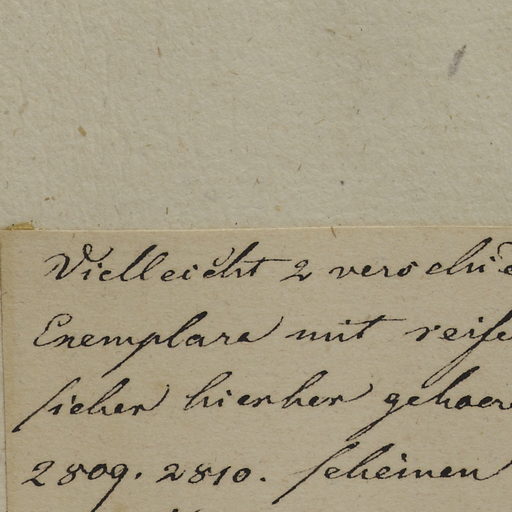 Vielleicht 2 verschie
Exemplare mit reife
sicher hierher gehoer
2809. 2810. scheinen